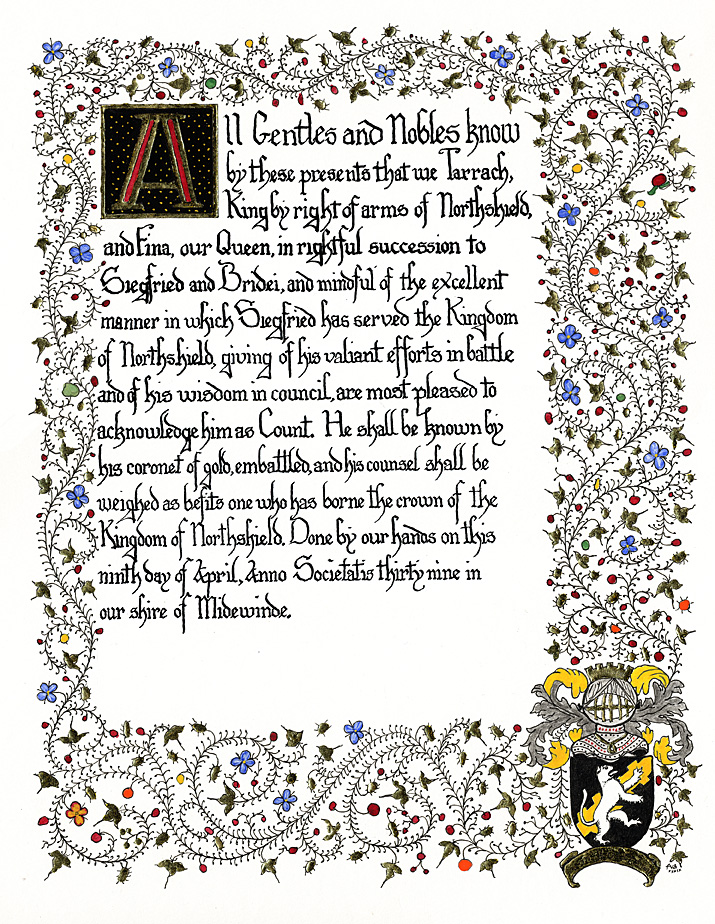 All Gentles and Nobles know
by these presents that we Tarrach,
King by right of arms of Northshield,
and Fina, our Queen, in rightful succession to
Siegfried and Bridei, and mindful of the excellent
manner in which Siegfried has served the Kingdom
of Northshield, giving of his valiant efforts in battle
and of his wisdom in council, are most pleased to
acknowledge him as Count. He shall be known by
his coronet of gold, embattled, and his counsel shall be
weighed as befits one who has borne the crown of the
Kingdom of Northshield. Done by our hands on this
ninth day of April, Anno Societatis thirty nine in
our shire of Midewinde.